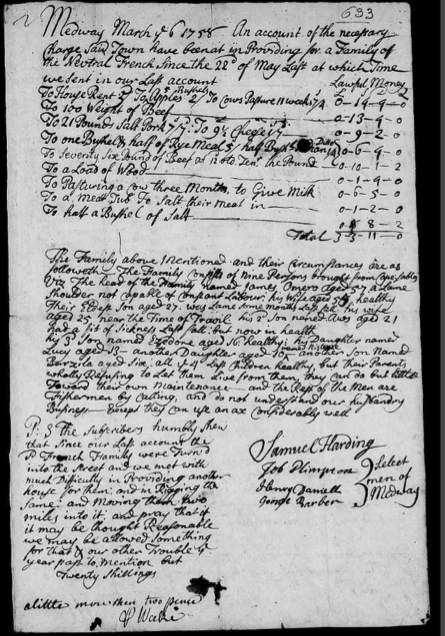 633
Medway March ye 6 1758 An account of the necessary
Charge Said Town have been at in Providing for a Family of
the Neutral French Since the 22d of May Last at which Time
we sent in our Last account
Lawful Money
To House Rent To Apples 2/ To Cows Pasture 11 week 0-19-9-0
To 100 Weight of Beef 0-13-9-0
To 21 Pound Salt Pork To Cheese 0-9-2-0
To one Bushel & half of Rye Meal half Bushel 0-6-9-0
To Seventy Six Pound of Beef at the Pound 0-10-1-2
To a Load of Wood 0-1-9-0
To Pasturing a Cow three Months to Give Milk 0-6-5-0
To a Meat Tub To Salt their meat in 0-1-2-0
To half a Bushel of Salt 8-2
Total 3-11-0
The Family above Mentioned and their Circumstances are as
followeth The Family Consists of Nine Persons brought from Cape Sables
Viz The head of the Family named James Omero aged 57 a Lame
Shoulder not capable of Constant Labour; his Wife aged healthy
Their Eldest Son aged 27. was Lame Some months Last fall, his wife
aged 25 near the Time of Travil his 2d Son named aged 21
had a fit of Sickness Last fall but now in health
his 3d Son named aged 16 healthy; his Daughter named
Lucy aged 13 another Daughter aged 10 another Son Named
Barzila aged Six, all these Last Children healthy, but their Parents
wholly Refusing to Let them Live from them, they can do but little
Toward their own Maintenance and the Rest of the Men are
Fishermen by Calling, and do not understand our Husbandry
Business Except they can use an ax Considerably well
P: S the Subscribers humbly Shew
that Since our Last account the
Sd French Family were Turn'd
into the Street and we met with
much Difficulty in Providing another
house for them; and in the
Same, and Moving them two
miles into it; and pray that if
it may be thought Reasonable
we may be allowed Something
for that & our other Trouble ye
year past to mention but
Twenty Shillings
Samuel Harding
Job Plimpton
Henry Daniell
George Barber
Select
men of
Medway
a little more then two pence